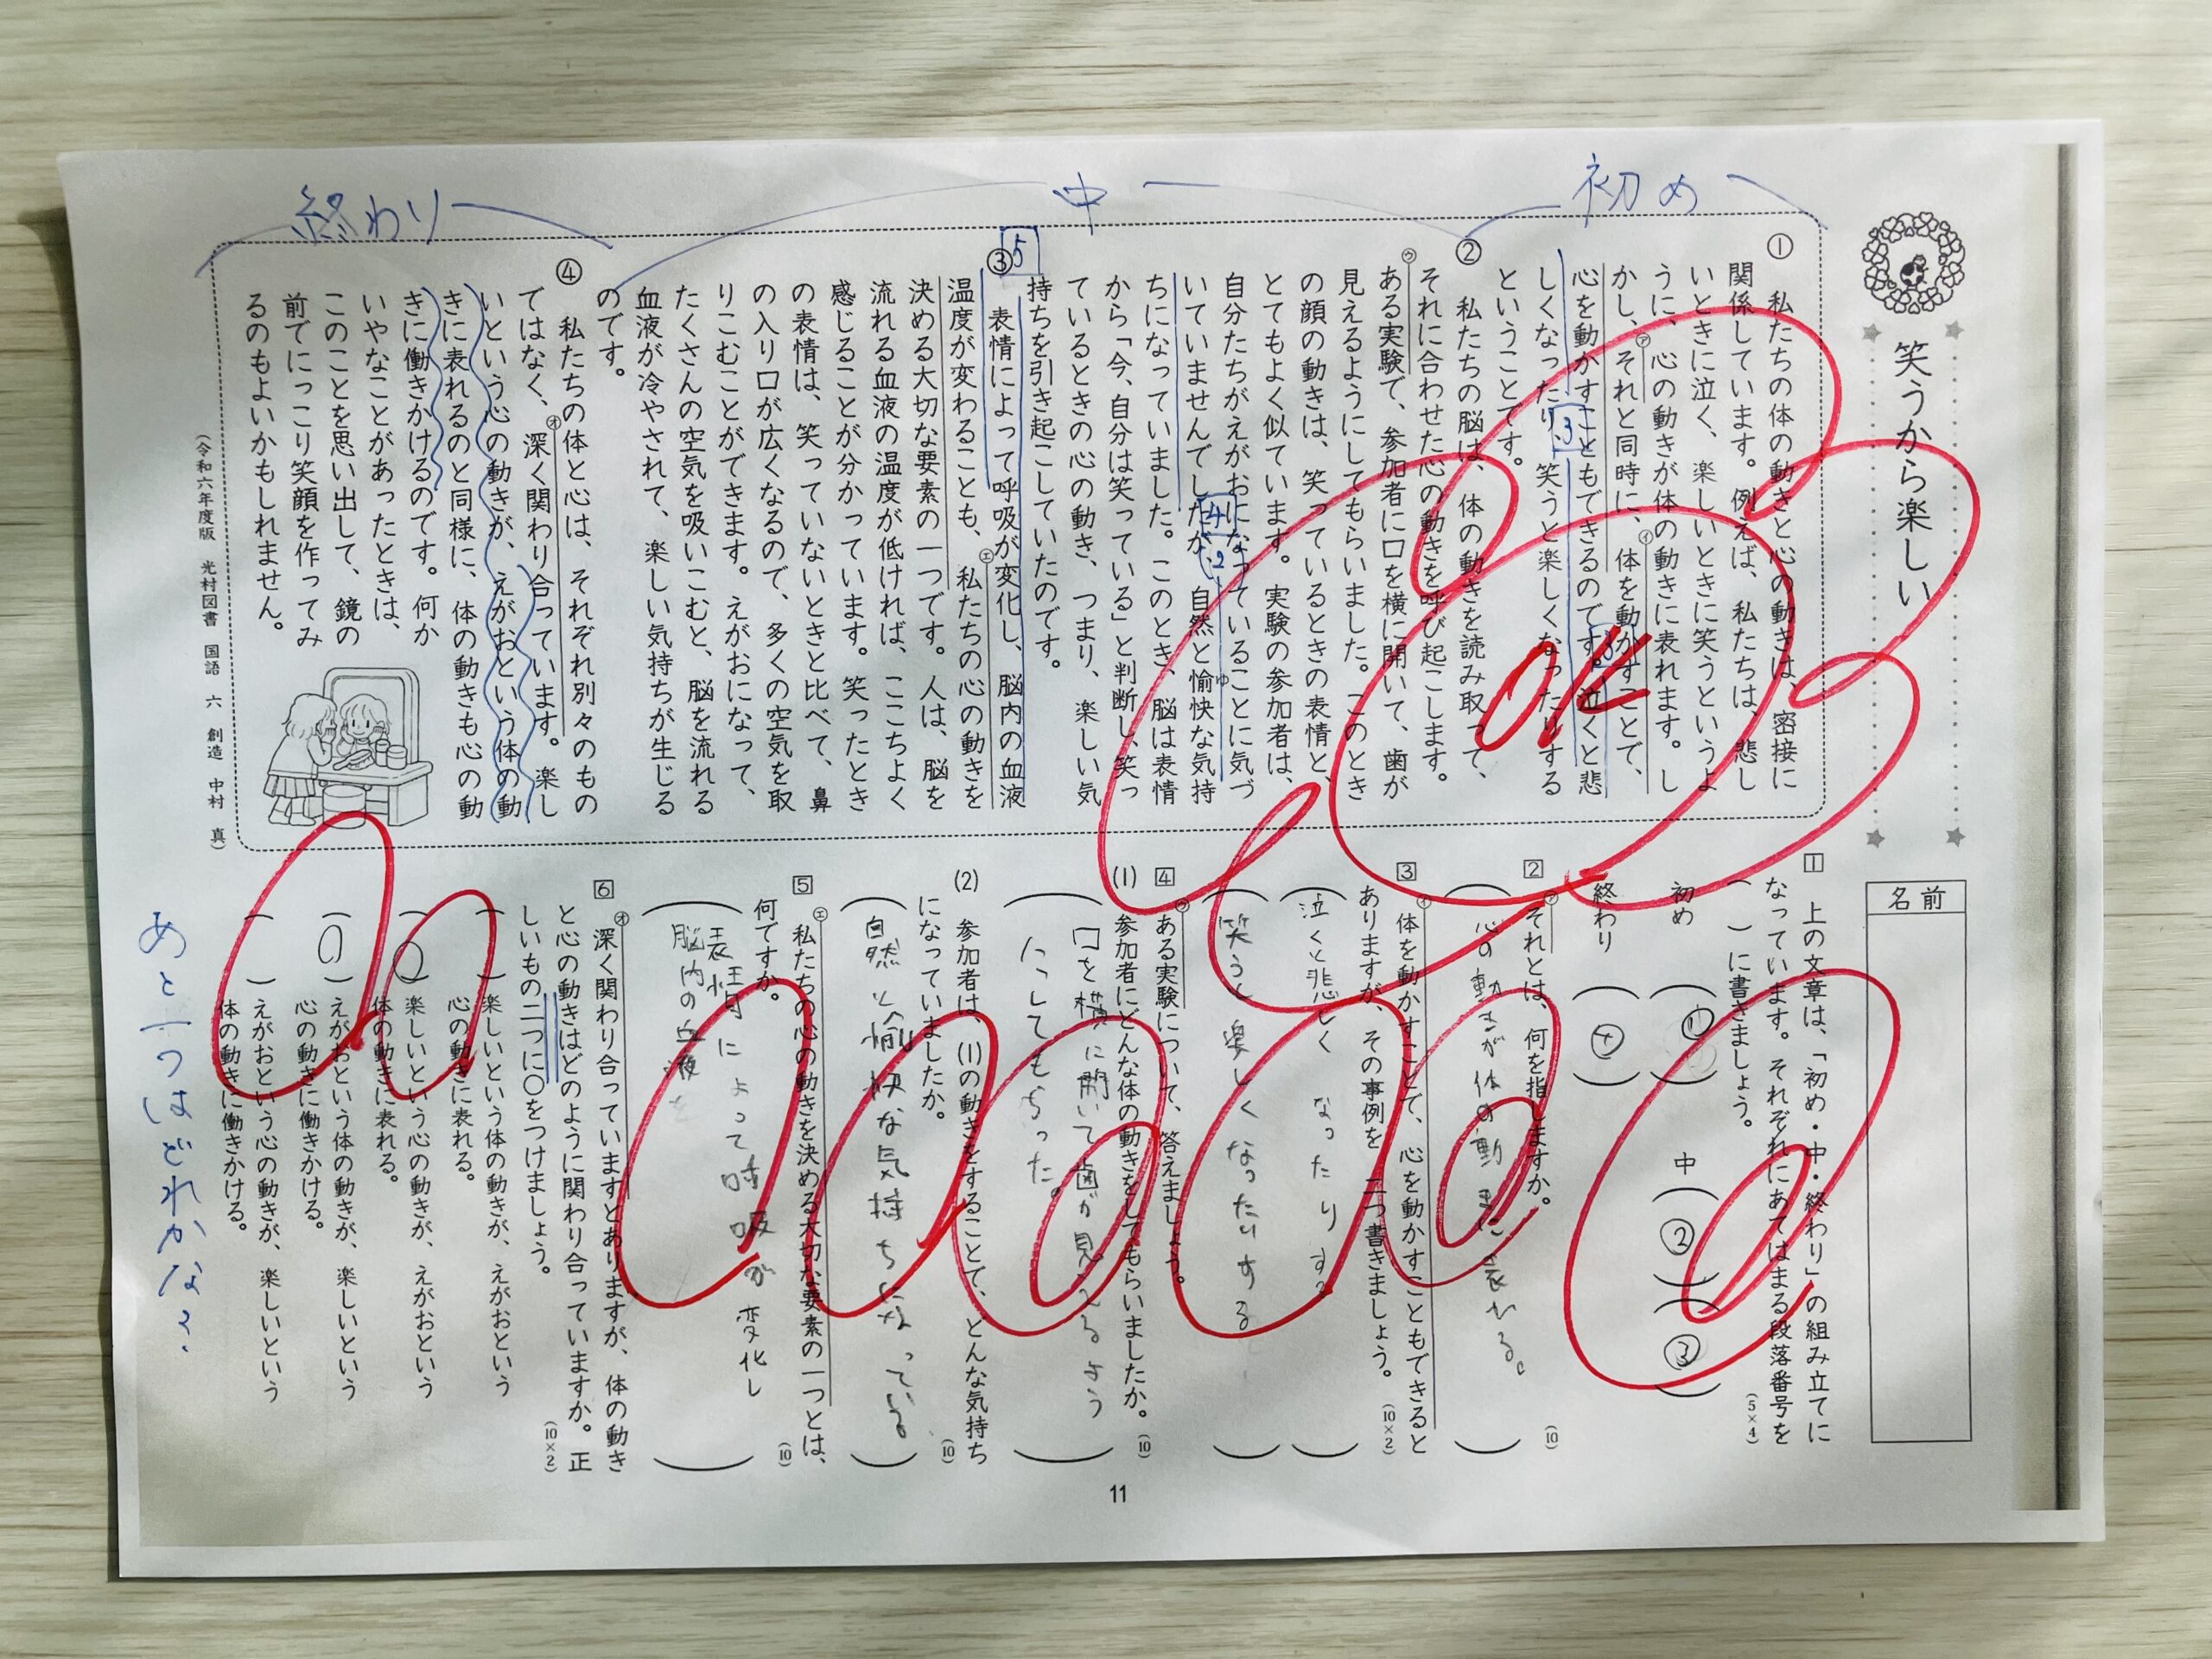 初め
中
終わり
笑うから楽しい
① 私たちの体の動きと心の動きは、密接に
関係しています。例えば、私たちは、悲し
いときに泣く、楽しいときに笑うというよ
うに、心の動きが体の動きに表れます。し
かし、㋐それと同時に、㋑体を動かすことで、
心を動かすこともできるのです。泣くと悲
しくなったり、笑うと楽しくなったりする
ということです。
3
② 私たちの脳は、体の動きを読み取って、
それに合わせた心の動きを呼び起こします。
㋒ある実験で、参加者に口を横に開いて、歯が
見えるようにしてもらいました。このとき
の顔の動きは、笑っているときの表情と、
とてもよく似ています。実験の参加者は、
自分たちがえがおになっていることに気づ
いていませんでしたが、自然と愉快な気持
ゆ
ちになっていました。このとき、脳は表情
から「今、自分は笑っている」と判断し、笑っ
ているときの心の動き、つまり、楽しい気
持ちを引き起こしていたのです。
4
2
5
③ 表情によって呼吸が変化し、脳内の血液
温度が変わることも、㋓私たちの心の動きを
決める大切な要素の一つです。人は、脳を
流れる血液の温度が低ければ、ここちよく
感じることが分かっています。笑ったとき
の表情は、笑っていないときと比べて、鼻
の入り口が広くなるので、多くの空気を取
りこむことができます。えがおになって、
たくさんの空気を吸いこむと、脳を流れる
血液が冷やされて、楽しい気持ちが生じる
のです。
④ 私たちの体と心は、それぞれ別々のもの
ではなく、㋔深く関わり合っています。楽し
いという心の動きが、えがおという体の動
きに表れるのと同様に、体の動きも心の動
きに働きかけるのです。何か
いやなことがあったときは、
このことを思い出して、鏡の
前でにっこり笑顔を作ってみ
るのもよいかもしれません。
(令和六年度版 光村図書 国語 六 創造 中村 真)
OK
名前
1 上の文章は、「初め・中・終わり」の組み立てに
なっています。それぞれにあてはまる段落番号を
( )に書きましょう。
(5×4)
初め (①) 中 (②) (③)
終わり (④)
2 ㋐それとは、何を指しますか。
(10)
心の動きが体の動きに表れる。
3 ㋑体を動かすことで、心を動かすこともできると
ありますが、その事例を二つ書きましょう。
(10×2)
泣くと悲しくなったりする
笑うと楽しくなったりする
4 ㋒ある実験について、答えましょう。
(1) 参加者にどんな体の動きをしてもらいましたか。
(10)
口を横に開いて歯が見えるよう
にしてもらった。
(2) 参加者は、(1)の動きをすることで、どんな気持ち
になっていましたか。
(10)
自然と愉快な気持ちになっている
5 ㋓私たちの心の動きを決める大切な要素の一つとは、
何ですか。
(10)
表情によって呼吸が変化し
脳内の血液
6 ㋔深く関わり合っていますとありますが、体の動き
と心の動きはどのように関わり合っていますか。正
しいもの二つに○をつけましょう。
(10×2)
( )楽しいという体の動きが、えがおという
心の動きに表れる。
(○)楽しいという心の動きが、えがおという
体の動きに表れる。
(○)えがおという体の動きが、楽しいという
心の動きに働きかける。
( )えがおという心の動きが、楽しいという
体の動きに働きかける。
あと一つはどれかな?
11